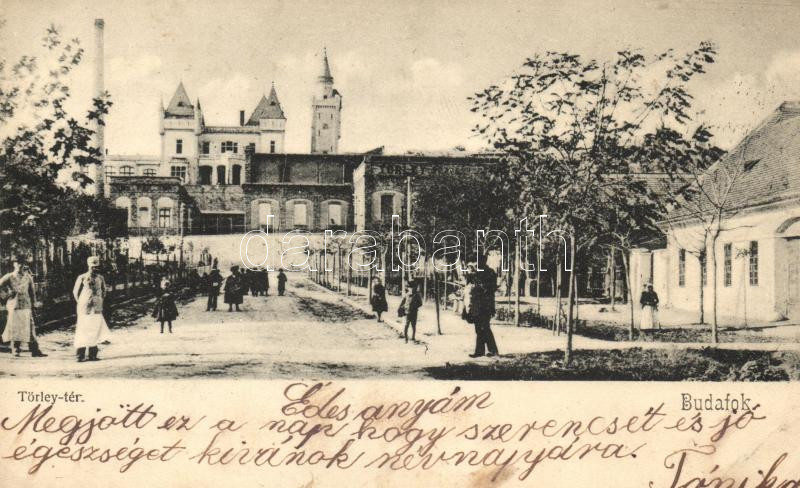 darabanth.com
Törley-tér.
Budafok
Édes anyám
Megjött ez a nap hogy szerencsét és jó
égészséget kivánok névnapjára.
Tónika